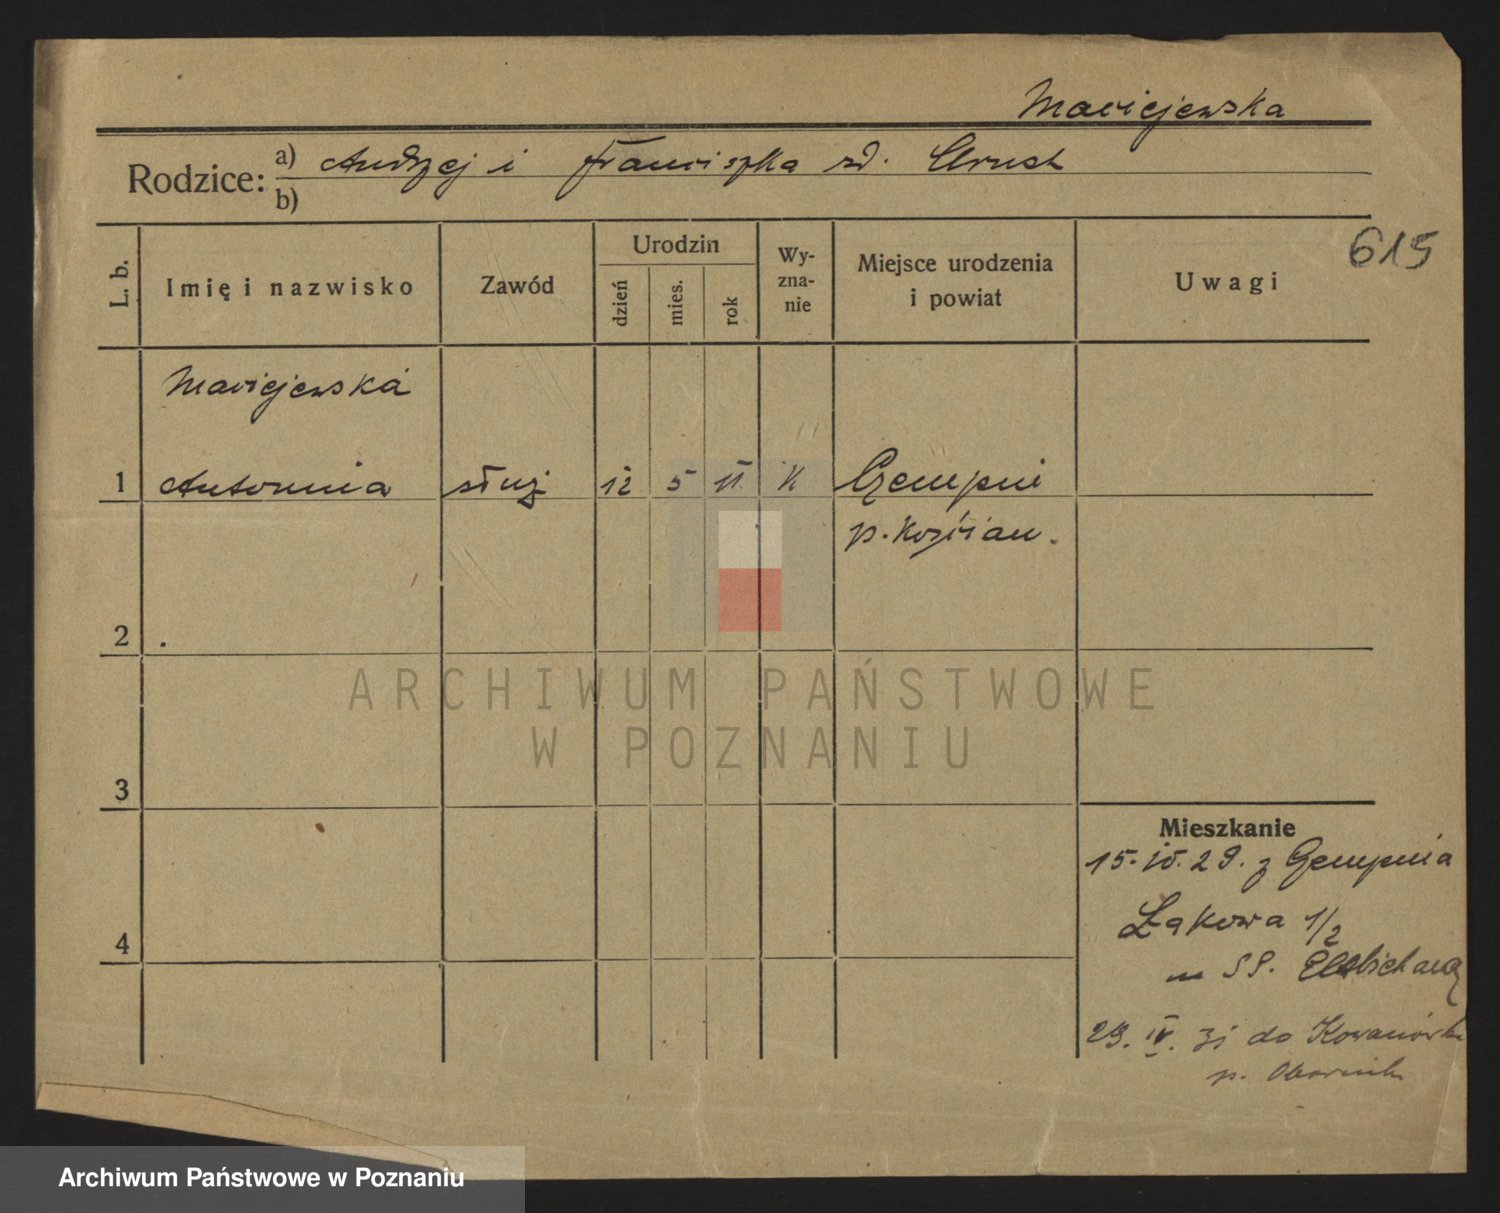 Maciejewska
Rodzice: a) Andrzej i Franciszka zd.
b)
615
L. b.
Imię i nazwisko
Zawód
Urodzin
dzień
mies.
rok
Wy-
zna-
nie
Miejsce urodzenia
i powiat
Uwagi
Maciejewska
1 Antonina służ 12 5 11 K Gzempin
p. Kościan.
2
3
4
Mieszkanie
15. 10. 29. z Gzempinia
Łąkowa 1/2
u SS. Elżbietanek
29. IV. 31 do Kowanówka
p. Obornik
ARCHIWUM PAŃSTWOWE
W POZNANIU
Archiwum Państwowe w Poznaniu